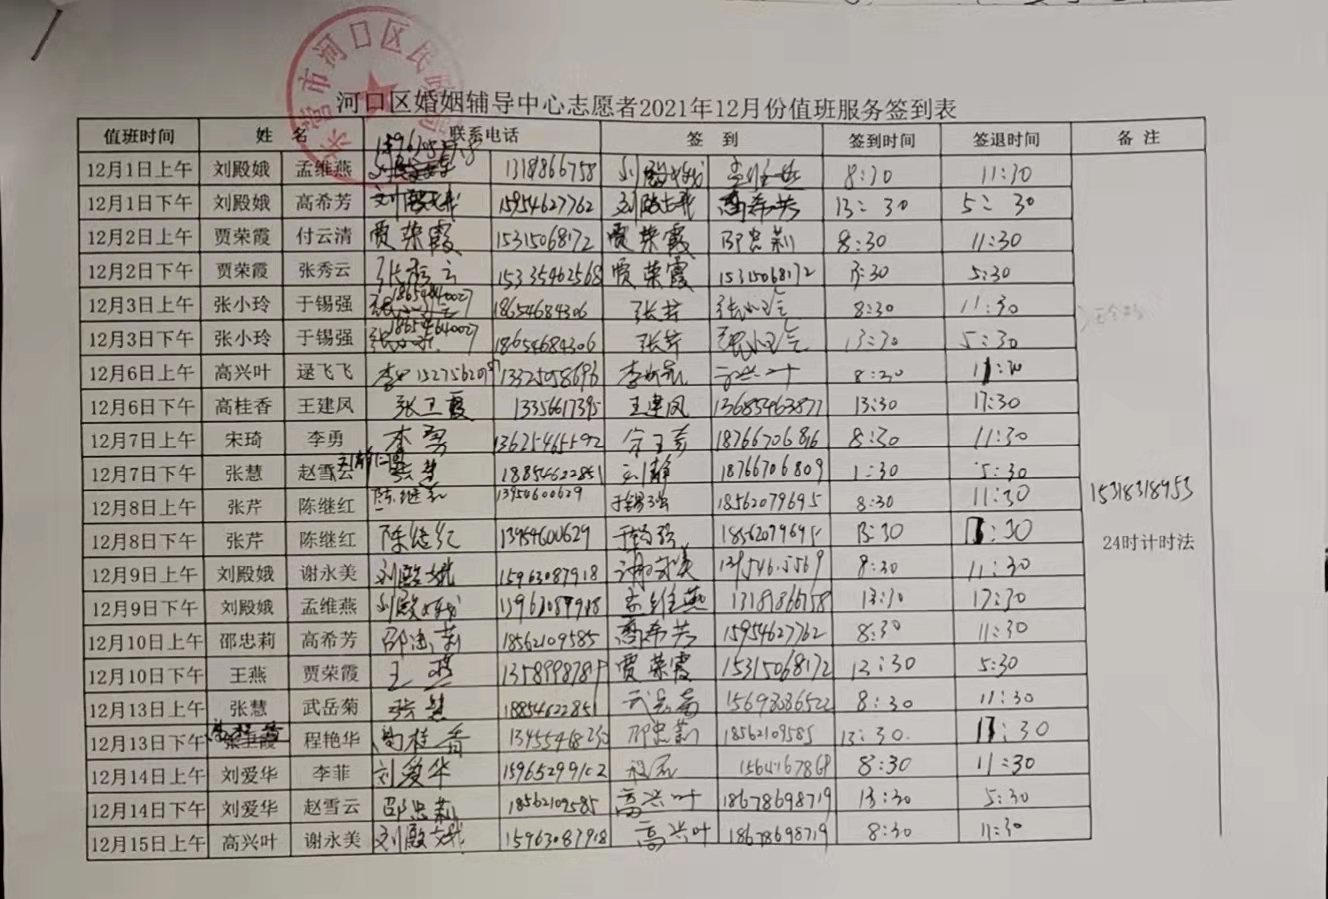 河口区婚姻辅导中心志愿者2021年12月份值班服务签到表
值班时间 姓 名 联系电话 签 到 签到时间 签退时间 备 注
12月1日上午 刘殿娥 孟维燕 1318866758 刘殿娥 孟维燕 8:30 11:30
12月1日下午 刘殿娥 高希芳 刘殿娥 15954627762 刘殿娥 高希芳 13:30 5:30
12月2日上午 贾荣霞 付云清 贾荣霞 15315068172 贾荣霞 邵忠莉 8:30 11:30
12月2日下午 贾荣霞 张秀云 张秀云 15335462568 贾荣霞 15315068172 13:30 5:30
12月3日上午 张小玲 于锡强 18654684306 张芹 张小玲 8:30 11:30
12月3日下午 张小玲 于锡强 18654640027 18654684306 张芹 张小玲 13:30 5:30
12月6日上午 高兴叶 逯飞飞 13325058696 高兴叶 8:30
12月6日下午 高桂香 王建凤 张卫霞 13356617395 王建凤 13685463877 13:30 17:30
12月7日上午 宋琦 李勇 李勇 13625465592 18766706816 8:30 11:30
12月7日下午 张慧 赵雪云 张慧 18854622851 刘静 18766706809 1:30 5:30
12月8日上午 张芹 陈继红 陈继红 13954600629 于锡强 18562079695 8:30 11:30
12月8日下午 张芹 陈继红 陈继红 13954600629 于锡强 18562079695 13:30
15318318953
24时计时法
12月9日上午 刘殿娥 谢永美 刘殿娥 15963087918 谢永美 8:30 11:30
12月9日下午 刘殿娥 孟维燕 刘殿娥 孟维燕 13:30 17:30
12月10日上午 邵忠莉 高希芳 邵忠莉 18562109585 高希芳 15954627762 8:30 11:30
12月10日下午 王燕 贾荣霞 王燕 贾荣霞 15315068172 5:30
12月13日上午 张慧 武岳菊 张慧 18854622851 武岳菊 8:30 11:30
12月13日下午 高桂香 程艳华 高桂香 邵忠莉 18562109585 13:30
12月14日上午 刘爱华 李菲 刘爱华 15965299102 8:30 11:30
12月14日下午 刘爱华 赵雪云 邵忠莉 18562109585 高兴叶 18678698719 13:30 5:30
12月15日上午 高兴叶 谢永美 刘殿娥 15963087918 高兴叶 18678698719 8:30 11:30